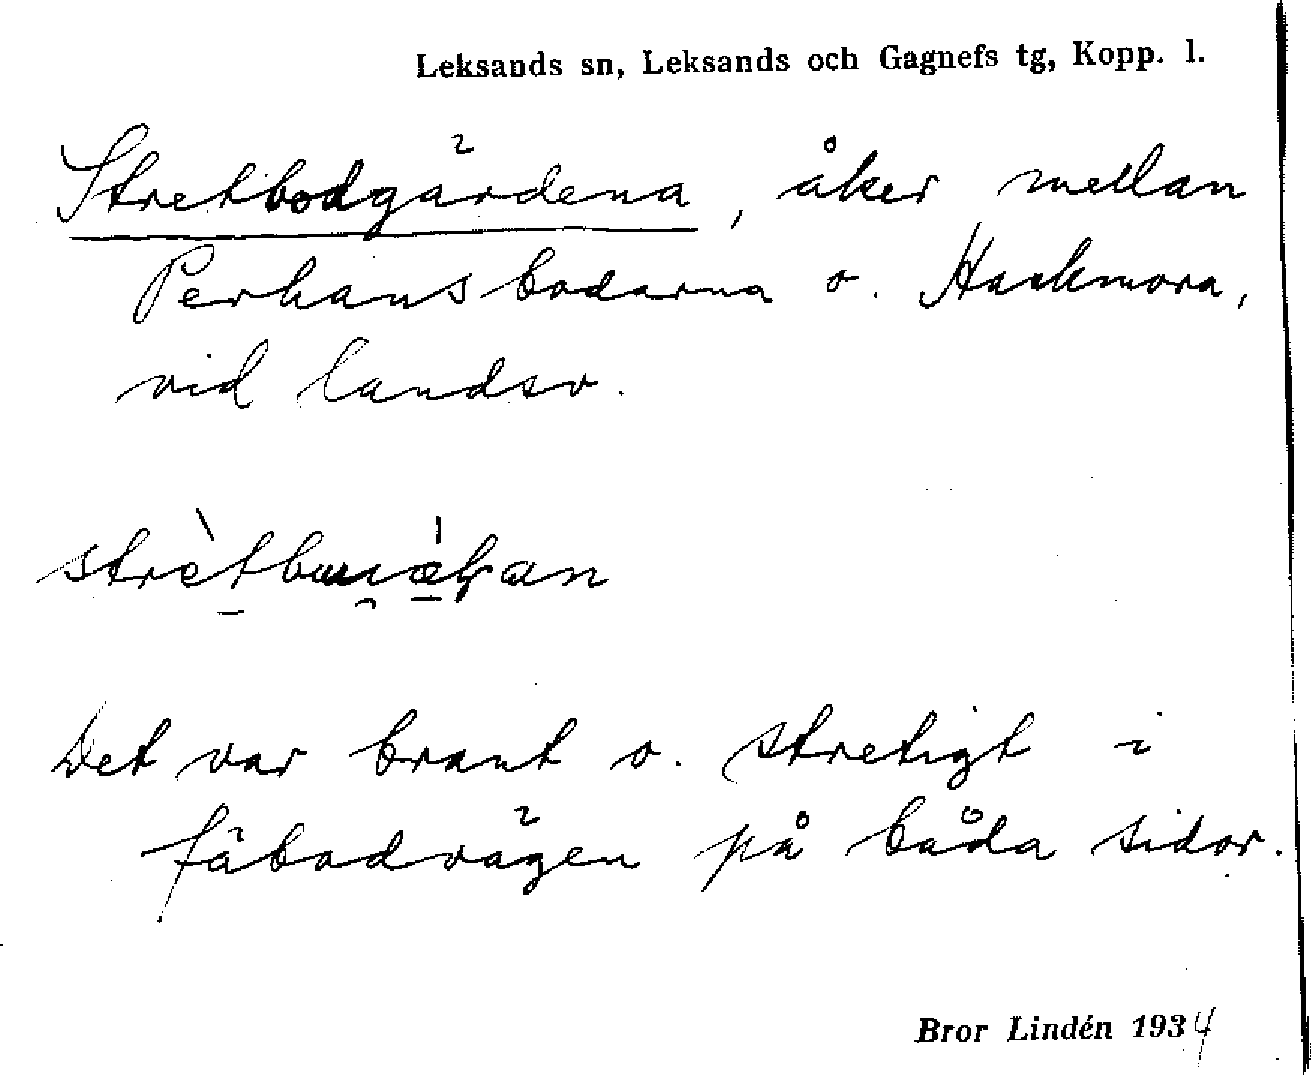 Leksands sn, Leksands och Gagnefs tg, Kopp. l.
Stretbodgärdena, åker mellan
Perhansbodarna o. Hackmora,
vid landsv.
Det var brant o. stretigt i
fäbodvägen på båda sidor.
Bror Lindén 1934